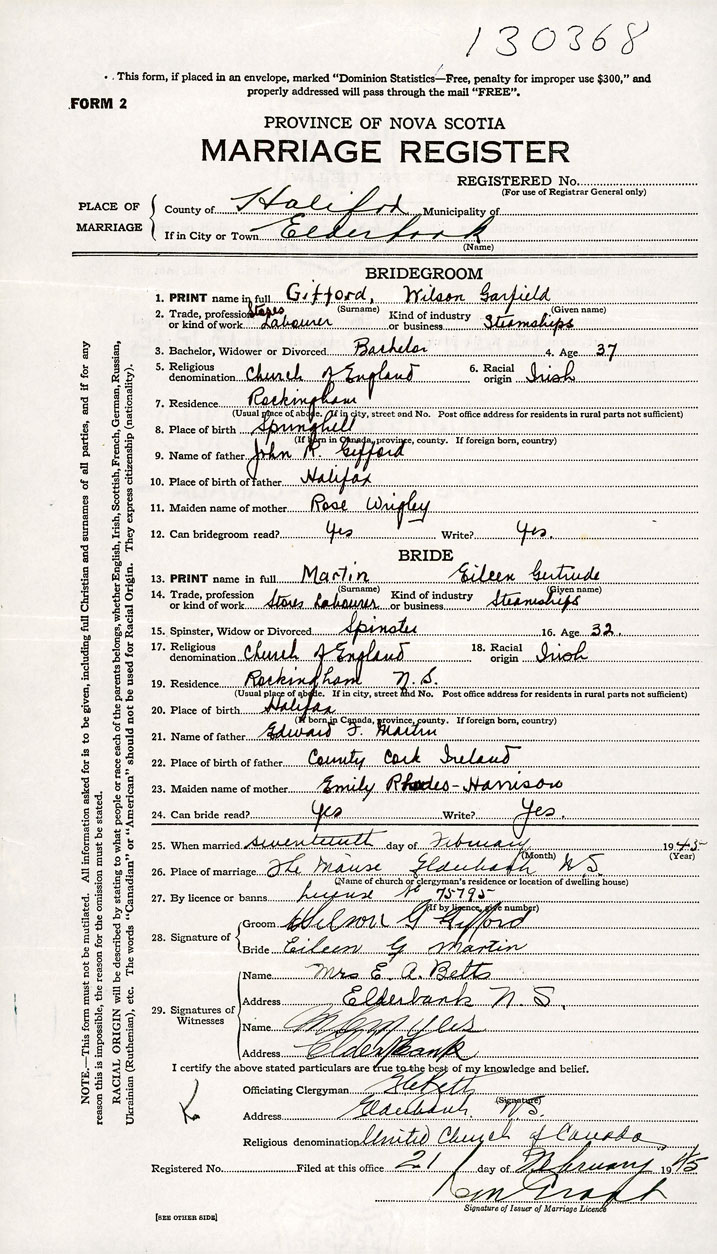 130368
This form, if placed in an envelope, marked "Dominion Statistics—Free, penalty for improper use $300," and
properly addressed will pass through the mail "FREE".
FORM 2
PROVINCE OF NOVA SCOTIA
MARRIAGE REGISTER
REGISTERED No.
(For use of Registrar General only)
PLACE OF MARRIAGE
County of Halifax Municipality of
If in City or Town Elderbank
(Name)
BRIDEGROOM
1. PRINT name in full Gifford, Wilson Garfield
(Surname) (Given name)
2. Trade, profession or kind of work Stores Labourer Kind of industry or business Steamships
3. Bachelor, Widower or Divorced Bachelor 4. Age 37
5. Religious denomination Church of England 6. Racial origin Irish
7. Residence Rockingham
(Usual place of abode. If in city, street and No. Post office address for residents in rural parts not sufficient)
8. Place of birth Springhill
(If born in Canada, province, county. If foreign born, country)
9. Name of father John R. Gifford
10. Place of birth of father Halifax
11. Maiden name of mother Rose Wrigley
12. Can bridegroom read? Yes Write? Yes.
BRIDE
13. PRINT name in full Martin Eileen Gertrude
(Surname) (Given name)
14. Trade, profession or kind of work Stores Labourer Kind of industry or business Steamships
15. Spinster, Widow or Divorced Spinster 16. Age 32.
17. Religious denomination Church of England 18. Racial origin Irish
19. Residence Rockingham N.S.
(Usual place of abode. If in city, street and No. Post office address for residents in rural parts not sufficient)
20. Place of birth Halifax
(If born in Canada, province, county. If foreign born, country)
21. Name of father Edward F. Martin
22. Place of birth of father County Cork Ireland
23. Maiden name of mother Emily Rhodes-Harrison
24. Can bride read? Yes Write? Yes.
25. When married seventeenth day of February 1945
(Month) (Year)
26. Place of marriage The Manse Elderbank N.S.
(Name of church or clergyman's residence or location of dwelling house)
27. By licence or banns license No 75795
(If by licence, give number)
28. Signature of
Groom Wilson G Gifford
Bride Eileen G Martin
29. Signatures of Witnesses
Name Mrs E. A. Betts
Address Elderbank N.S.
Name
Address Elderbank
I certify the above stated particulars are true to the best of my knowledge and belief.
Officiating Clergyman
(Signature)
Address Elderbank N.S.
Religious denomination United Church of Canada
Registered No. Filed at this office 21 day of February 1945
Signature of Issuer of Marriage Licence
[SEE OTHER SIDE]
NOTE.—This form must not be mutilated. All information asked for is to be given, including full Christian and surnames of all parties, and if for any
reason this is impossible, the reason for the omission must be stated.
RACIAL ORIGIN will be described by stating to what people or race each of the parents belongs, whether English, Irish, Scottish, French, German, Russian,
Ukrainian (Ruthenian), etc. The words "Canadian" or "American" should not be used for Racial Origin. They express citizenship (nationality).